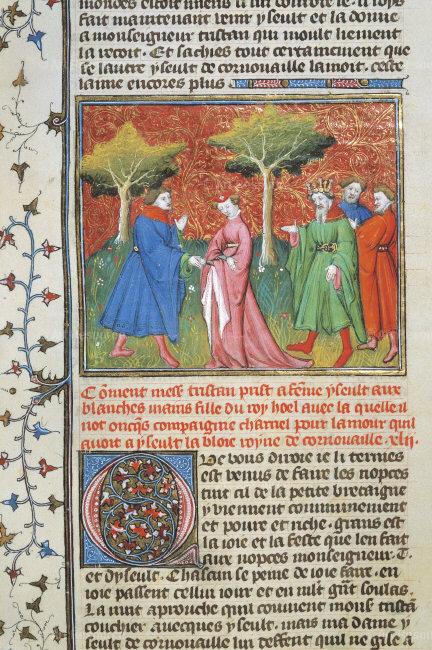 fait maintenant venir yseult et la donne
a monseigneur tristan qui moult liement
la recoit. Et sachies tout certainement que
se lautre yseult de cornouaille lamoit. ceste
laime encores plus
Cõment mess̃ tristan prist a fẽme yseult aux
blanches mains fille du roy hoel avec la quelle il
not oncq̃s compaignie charnel pour lamour quil
avoit a yseult la bloie royne de cornouaille. xlii.
Que vous diroie ie li termes
est venus de faire les nopces
tuit cil de la petite bretaigne
y viennent communement
et povre et riche. grans est
la ioie et la feste que len fait
aux nopces monseigneur .T.
et dyseult. Chascun se peine de ioie faire. en
ioie passent cellui iour et en mlt̃ grãt soulas.
La nuit aprouche quil couvient monss̃ tristã
couchier avecques yseult. mais ma dame y
seult de cornouaille lui deffent quil ne gise a